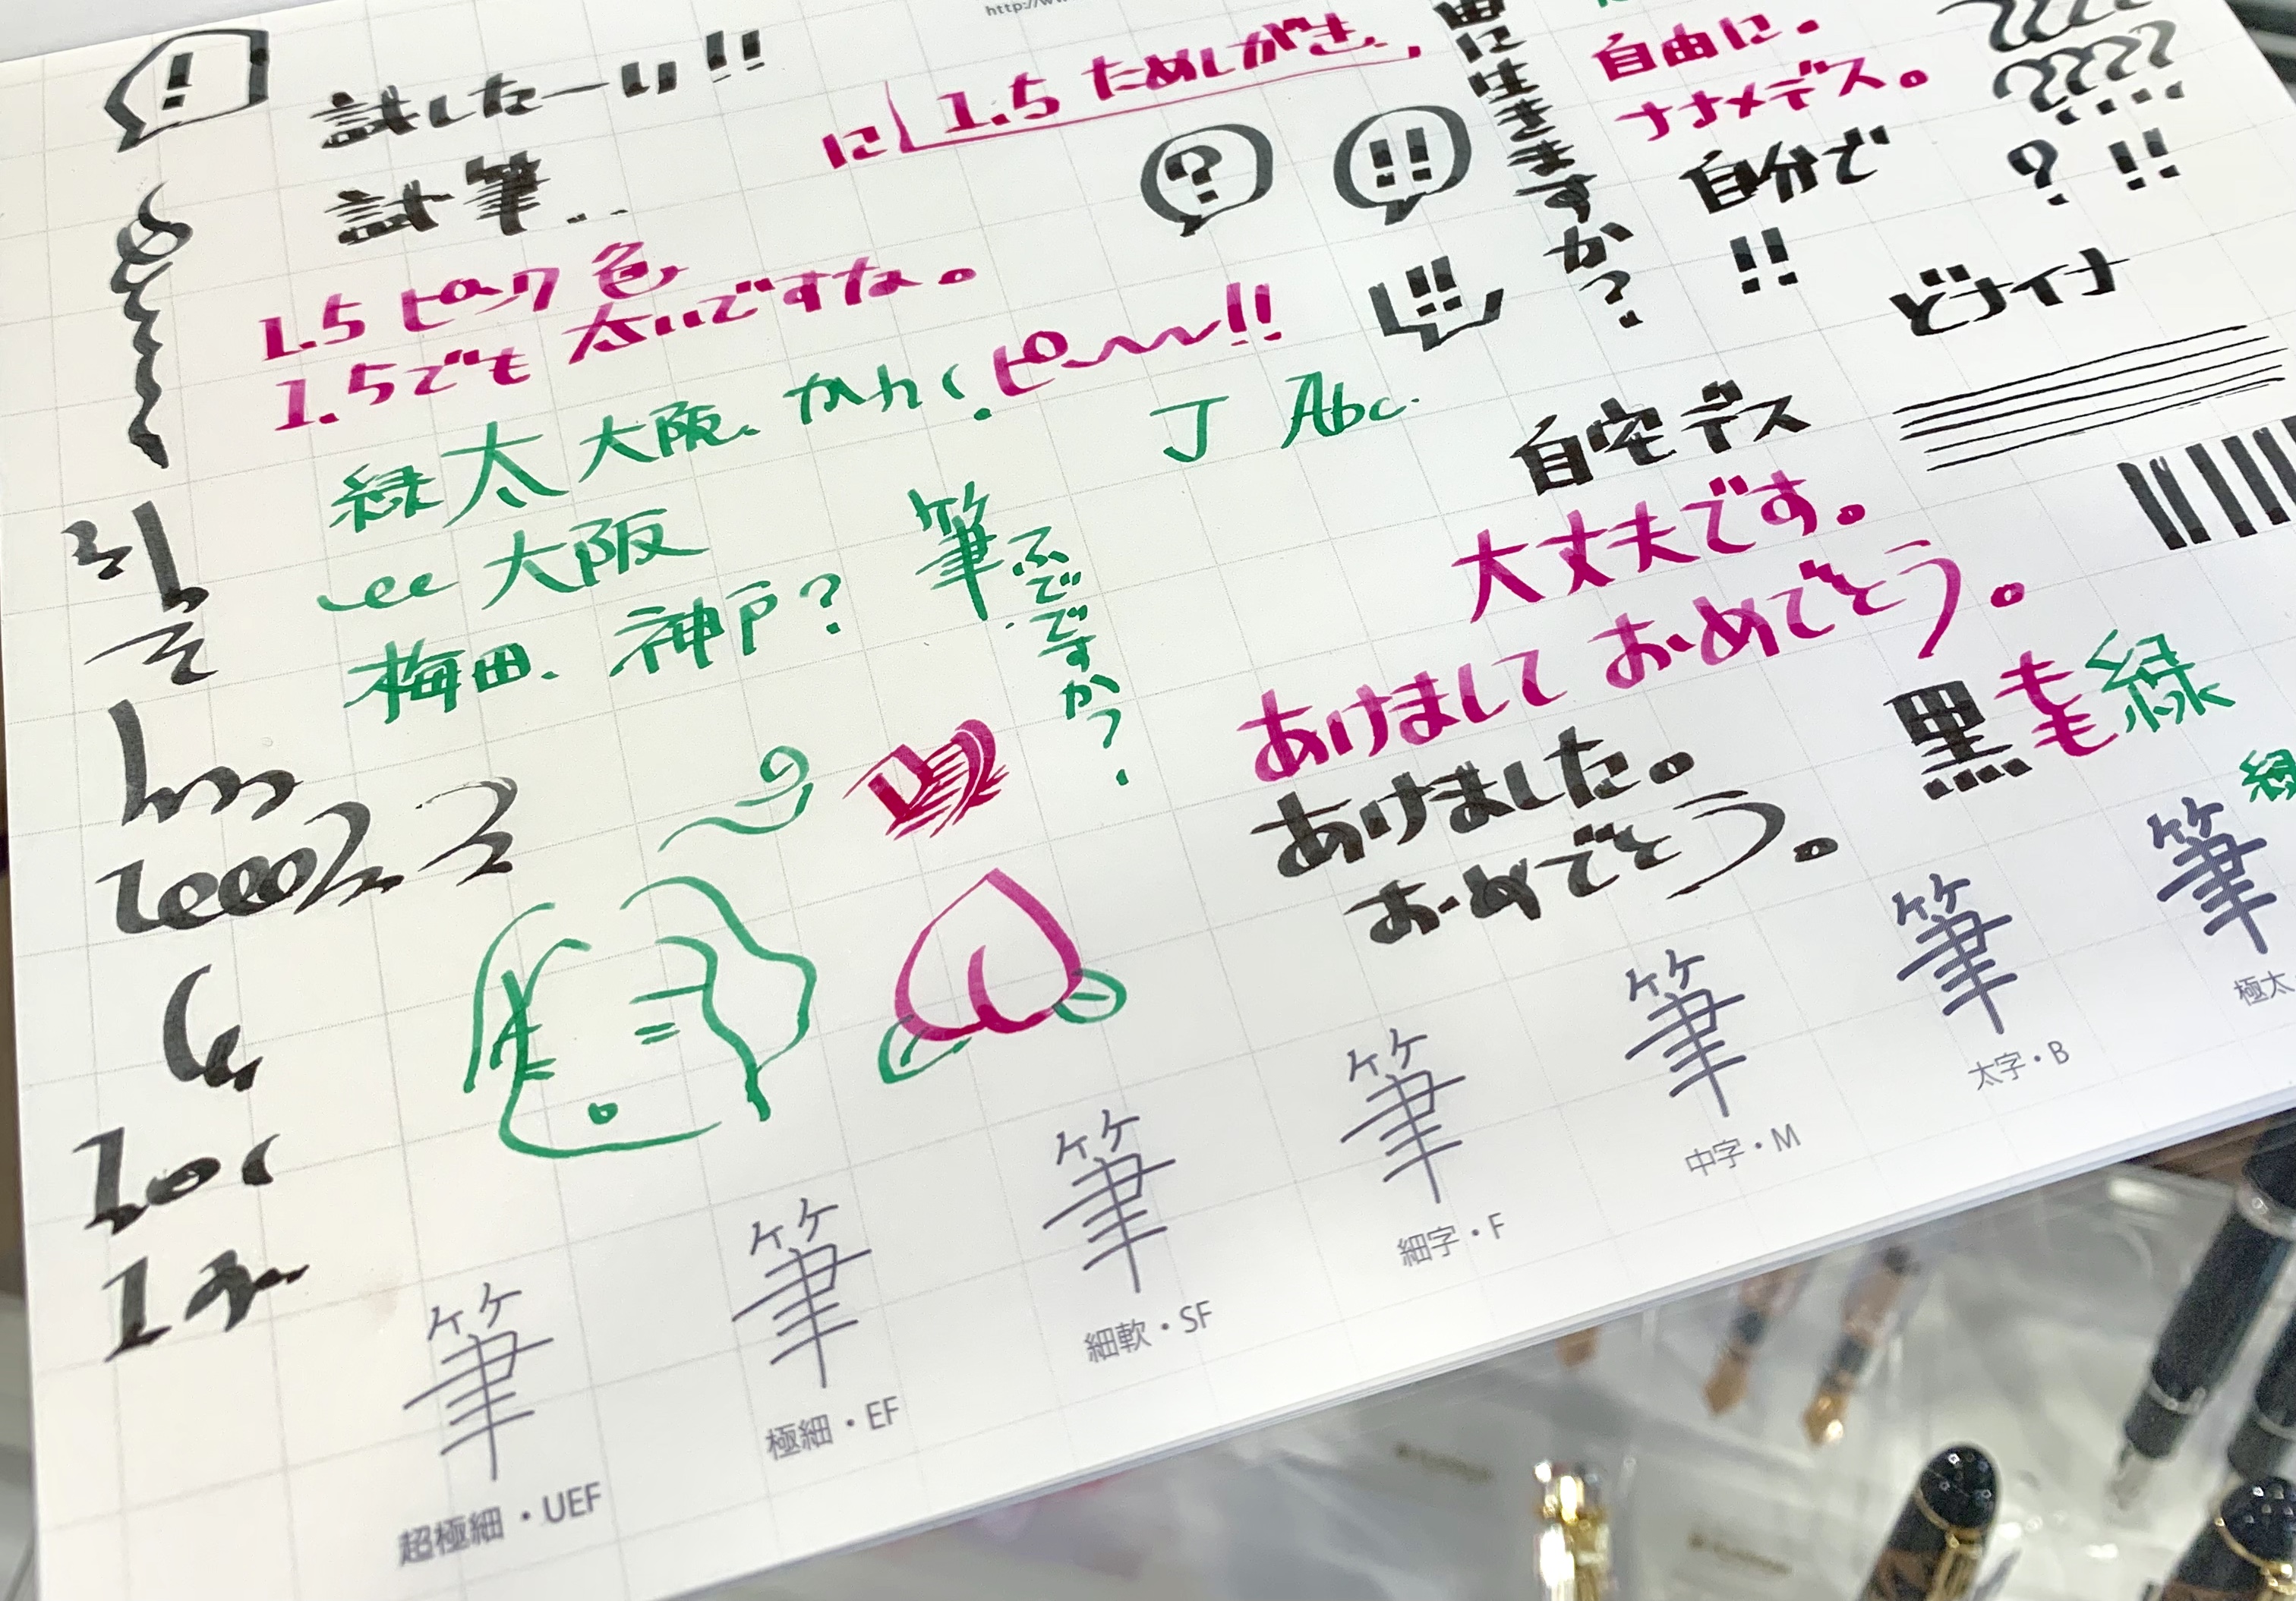 !
試したーい!!
試筆...
に
1.5 ためしがき.
1.5 ピンク 色
1.5でも 太いですな。
ピー〜!!
緑 太 大阪、かんく.
大阪
梅田、神戸?
筆
ふでですか?
J Abc.
?
!!
!!
由にはきますか?
自由に。
ナナメデス。
自分で
!!
? !!
どナイナ
自宅デス
大丈夫です。
あけまして おめでとう。
あけました。
おめでとう。
黒もも緑
緑
筆
超極細・UEF
筆
極細・EF
筆
細軟・SF
筆
細字・F
筆
中字・M
筆
太字・B
筆
極太